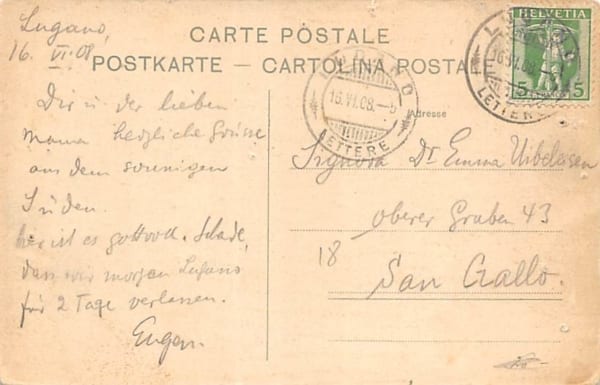 Lugano,
16. VI. 08
CARTE POSTALE
POSTKARTE — CARTOLINA POSTALE
HELVETIA
5 5
LUGANO
16.VI.08.
LETTERE
Adresse
Dir u. der lieben
Mama herzliche Grüsse
aus dem sonnigen
Süden.
hier ist es gottvoll. Schade,
dass wir morgen Lugano
für 2 Tage verlassen.
Eugen.
Signora Dr Emma Uibeleisen
Oberer Graben 43
18
San Gallo.